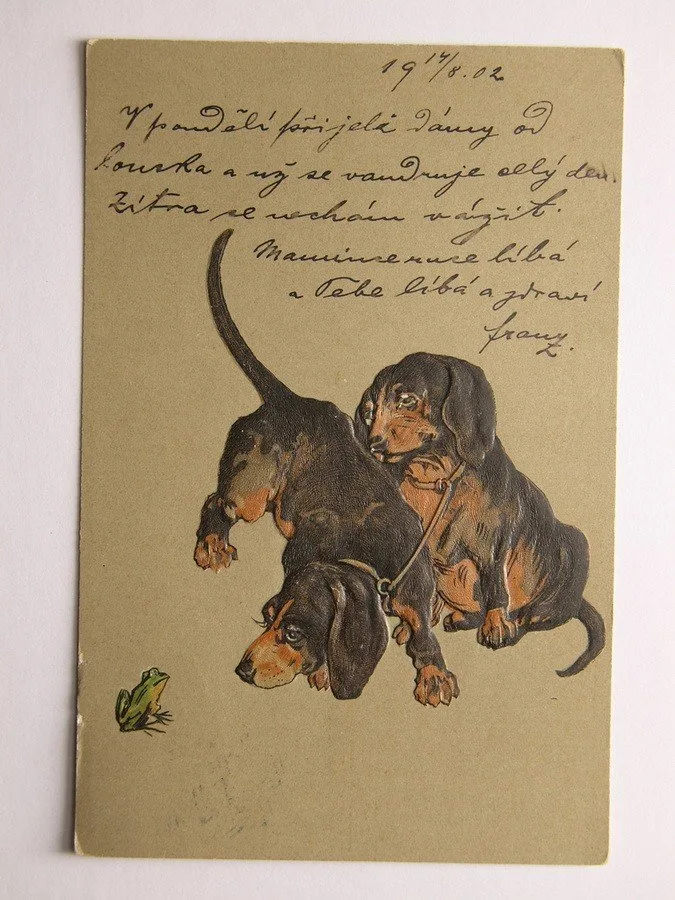 19 14/8. 02
V pondělí přijela dámy od
Louska a už se vandruje celý den.
Zítra se nechám vážit.
Mamince ruce líbá
a Tebe líbá a zdraví
franz.